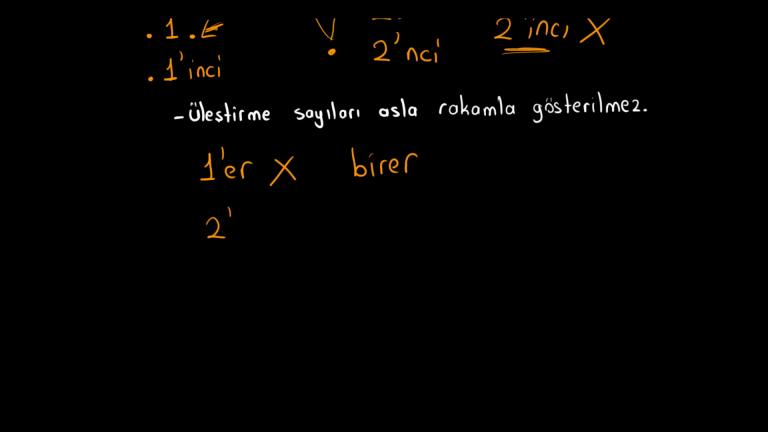 . 1 . 2'nci 2 inci X
. 1'inci
- Üleştirme sayıları asla rakamla gösterilmez.
1'er X birer
2'